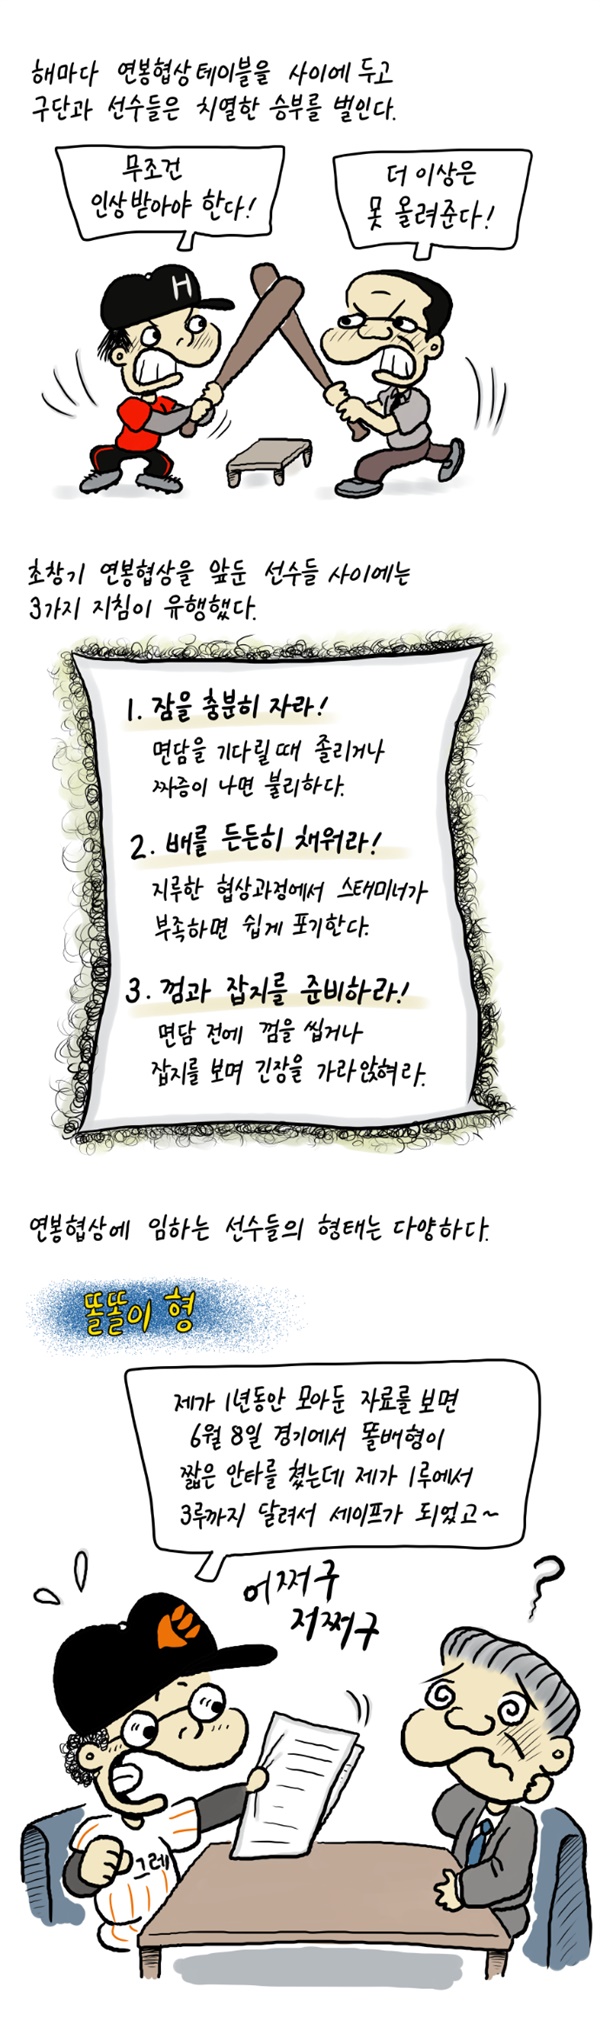 해마다 연봉협상 테이블을 사이에 두고
구단과 선수들은 치열한 승부를 벌인다.
무조건
인상받아야 한다!
더 이상은
못 올려준다!
H
초창기 연봉협상을 앞둔 선수들 사이에는
3가지 지침이 유행했다.
1. 잠을 충분히 자라!
면담을 기다릴 때 졸리거나
짜증이 나면 불리하다.
2. 배를 든든히 채워라!
지루한 협상과정에서 스태미너가
부족하면 쉽게 포기한다.
3. 껌과 잡지를 준비하라!
면담 전에 껌을 씹거나
잡지를 보며 긴장을 가라앉혀라.
연봉협상에 임하는 선수들의 형태는 다양하다.
똘똘이 형
제가 1년동안 모아둔 자료를 보면
6월 8일 경기에서 똘배형이
짧은 안타를 쳤는데 제가 1루에서
3루까지 달려서 세이프가 되었고~
어쩌구
저쩌구
?
그레